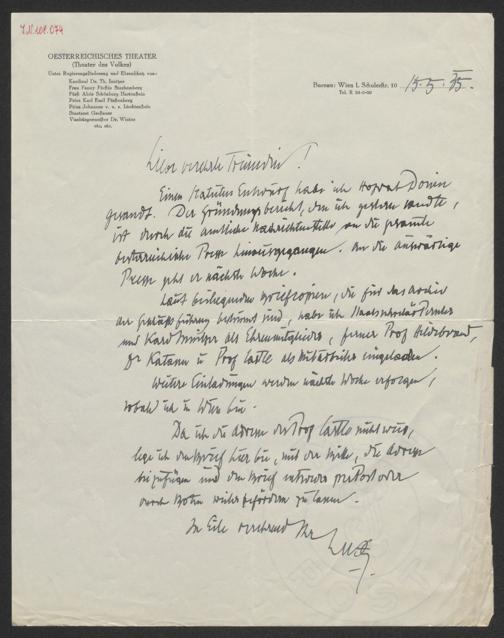 I.N. 208.074
OESTERREICHISCHES THEATER
(Theater des Volkes)
Unter Regierungsförderung und Ehrenschutz von:
Kardinal Dr. Th. Innitzer
Frau Fanny Fürstin Starhemberg
Fürst Alois Schönburg Hartenstein
Prinz Karl Emil Fürstenberg
Prinz Johannes v. u. z. Liechtenstein
Staatsrat Gessmann
Vizebürgermeister Dr. Winter
etc. etc.
Bureau: Wien I. Schulerstr. 10
Tel. R 24-0-00
15.5.35.
Liebe verehrte Freundin!
Einen Statuten Entwurf habe ich Hofrat
gesandt. Der Gründungsbericht, den ich gestern sandte,
ist durch die amtliche Nachrichtenstelle an die gesamte
österreichische Presse hinausgegangen. An die auswärtige
Presse geht er nächste Woche.
Laut beiliegenden Briefcopien, die für das Archiv
der Geschäftsführung bestimmt sind, habe ich Staatssekretär Pernter
und Karl als Ehrenmitglieder, ferner Prof Hildebrand,
Dr Katann u Prof Castle als Mitarbeiter eingeladen.
Weitere Einladungen werden nächste Woche erfolgen,
sobald ich in Wien bin.
Da ich die Adresse des Prof Castle nicht weiss,
lege ich den Brief hier bei, mit der Bitte, die Adresse
beizufügen und den Brief entweder per Post oder
durch Boten weiterbefördern zu lassen.
In Eile verehrend Ihr